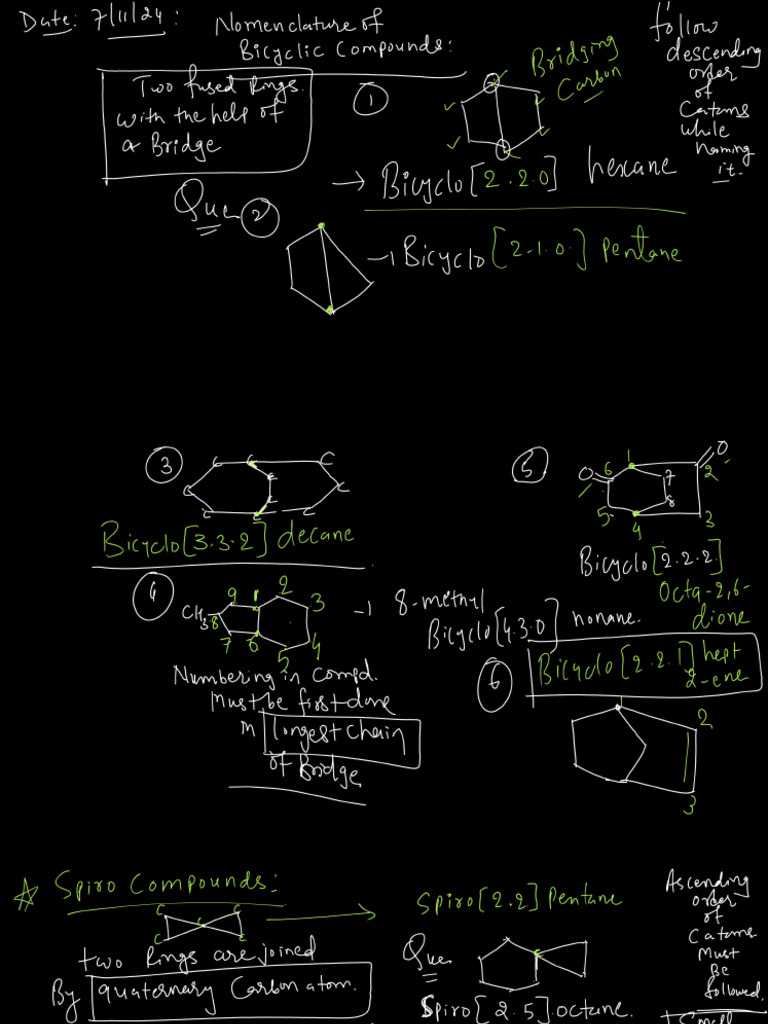 Date: 7/11/24:
Nomenclature of
Bicyclic Compounds:
Two fused Rings.
with the help of
a Bridge
1
Bridging
Carbon
follow
descending
order
of
Catoms
while
naming
it.
→ Bicyclo[2.2.0] hexane
Que 2
Bicyclo[2-1.0.] Pentane
3
C C C
C C C
C C C C
Bicyclo[3.3.2] decane
5
O 6 1 7 2 O
5 4 8 3
Bicyclo[2.2.2]
Octa-2,6-
dione
4
CH3 8 9 1 2 3
7 6 5 4
8-methyl
Bicyclo[4.3.0] nonane.
Numbering in compd.
Must be first done
in longest chain
of Bridge
6
Bicyclo[2.2.1] hept
2-ene
2
3
☆ Spiro Compounds:
C C C
C C
→ Spiro[2.2] Pentane
two Rings are joined
By quaternary Carbon atom.
Que
Spiro[2.5] octane.
Ascending
order
of
Catoms
Must
Be
followed.
Small